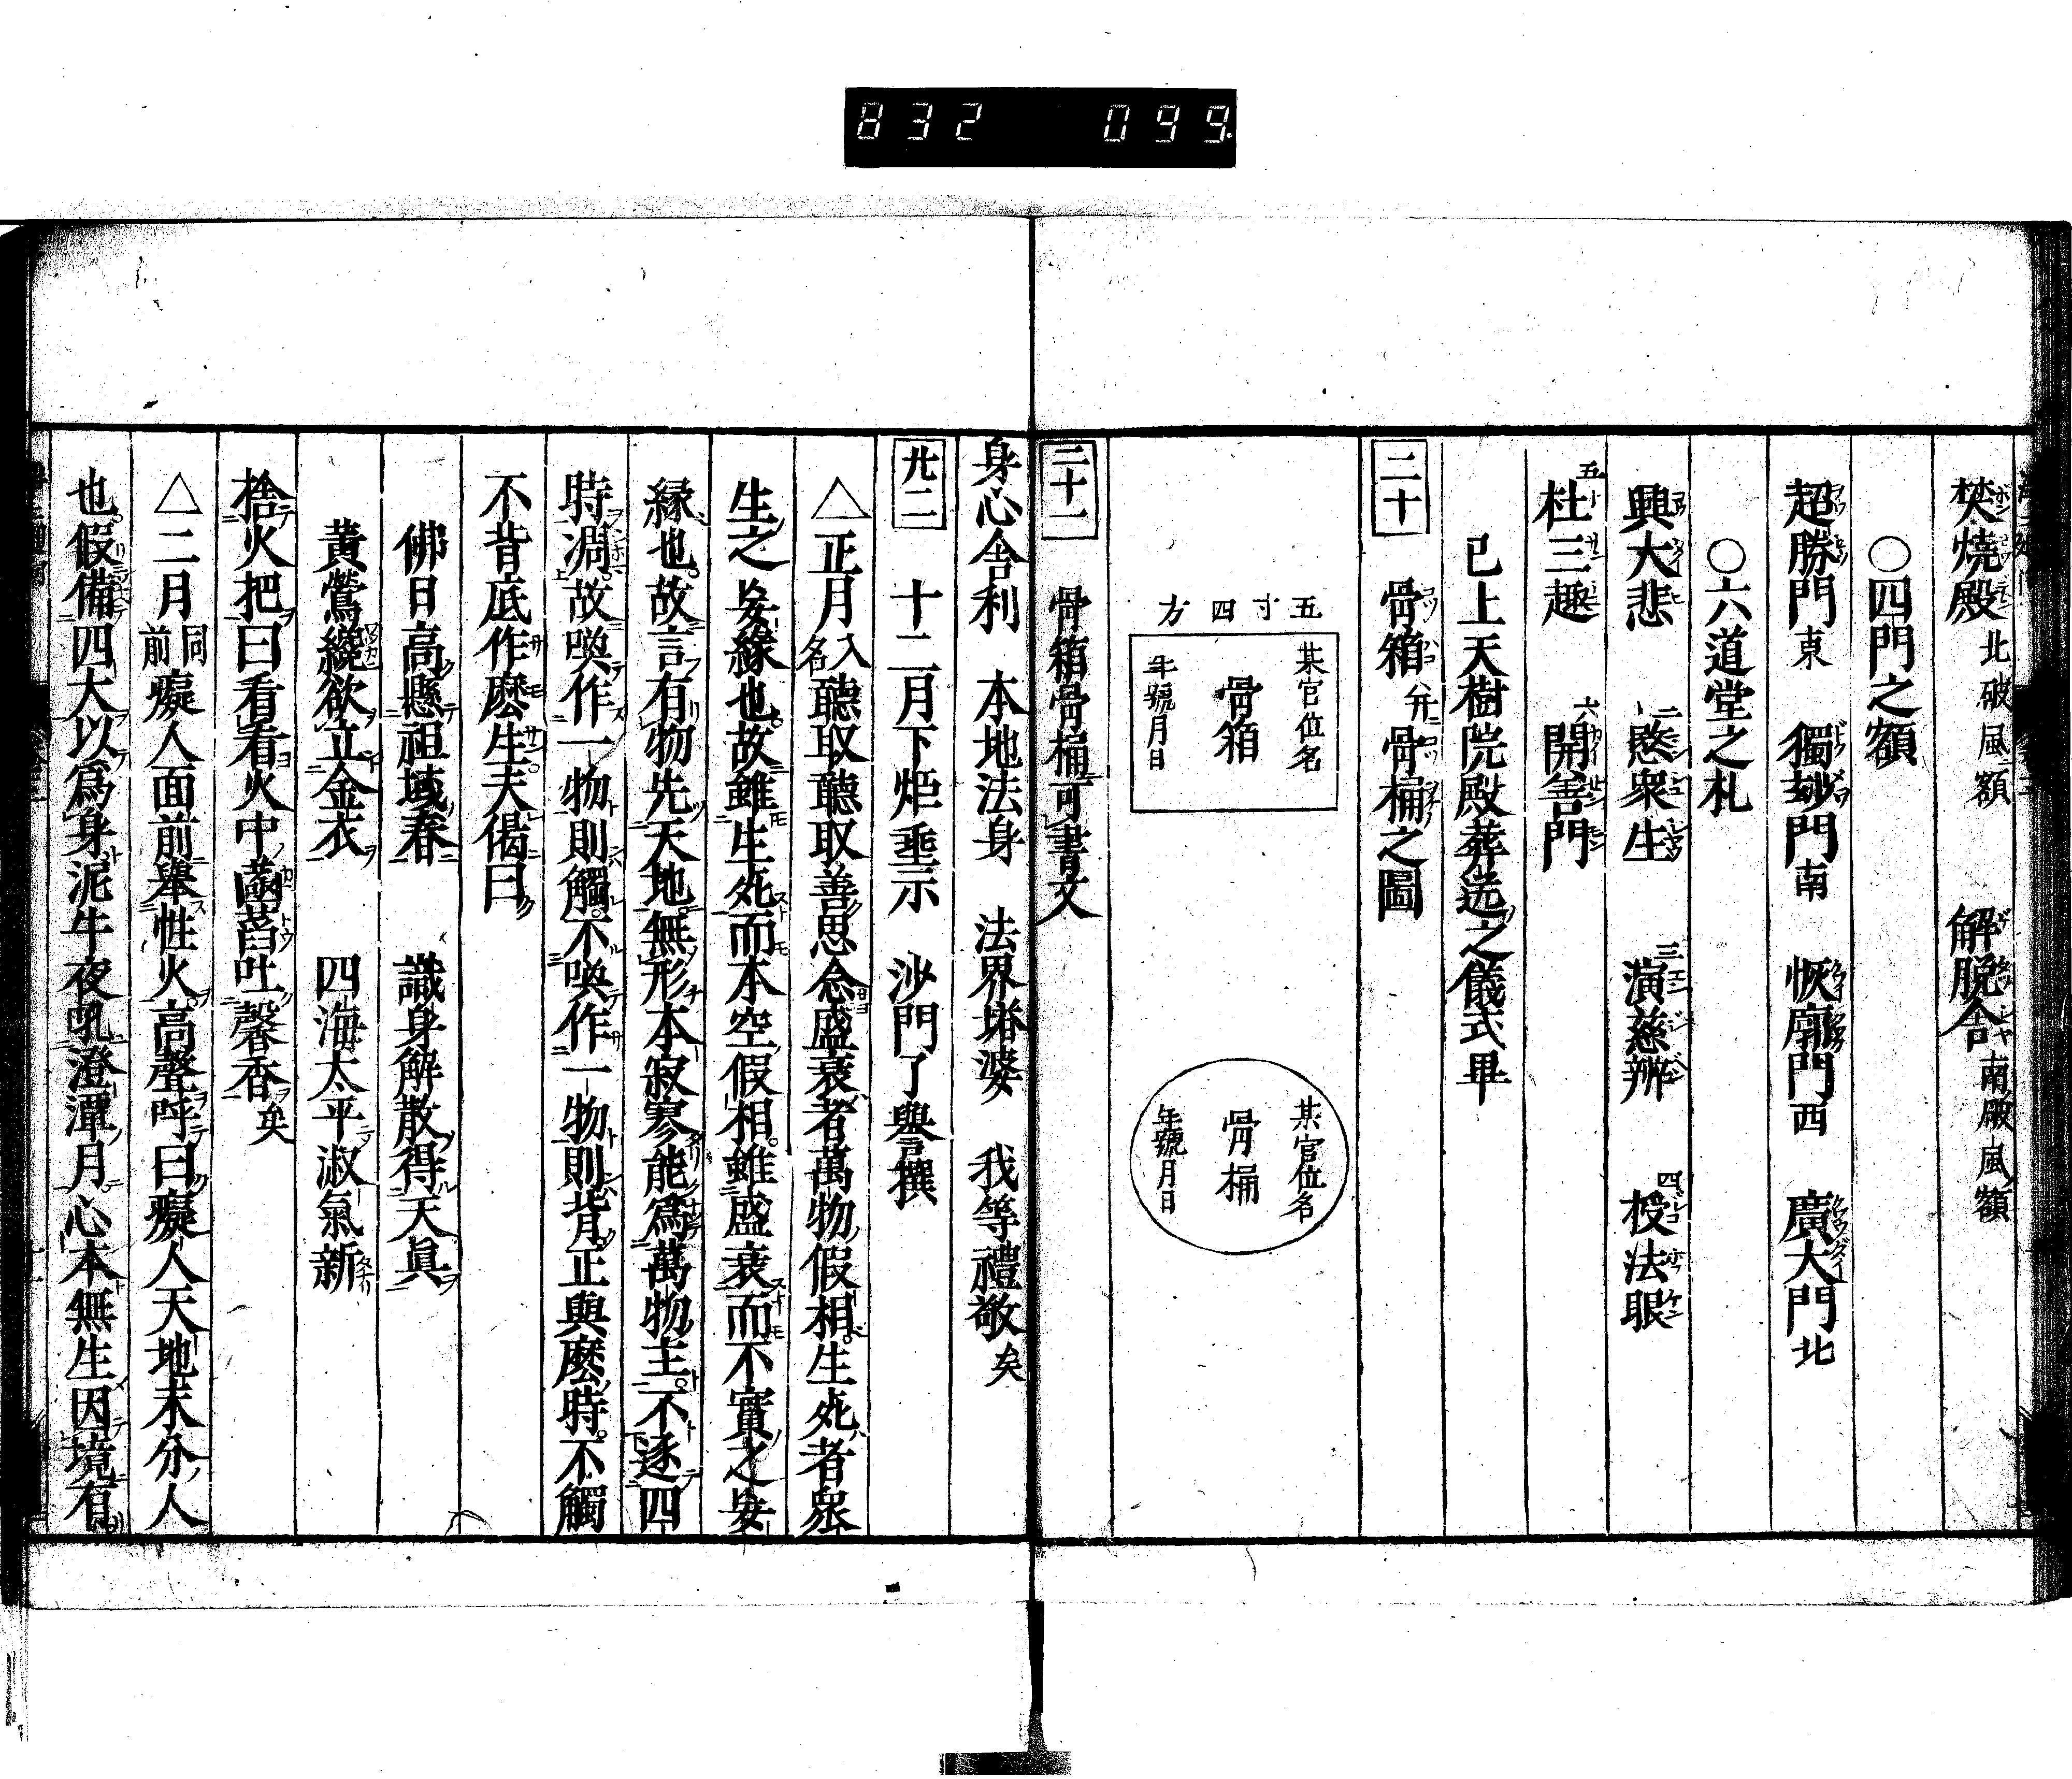 832 099
焚燒殿 北破風額 解脫舎 南破風額
〇四門之額
超勝門 東 獨妙門 南 恢廓門 西 廣大門 北
〇六道堂之札
興大悲 二愍衆生 三演慈辨 四授法眼
五杜三趣 六開善門
已上天樹院殿葬送之儀式畢
二十 骨箱并骨桶之圖
五寸四方
某官位名
骨箱
年號月日
某官位名
骨桶
年號月日
二十一 骨箱骨桶可書文
身心舎利 本地法身 法界塔婆 我等禮敬矣
廿二 十二月下炬埀示 沙門了譽撰
△正月入名聽取聽取善思念盛衰者萬物假相生死者衆
生之妄緣也故雖生死而本空假相雖盛衰而不實之妄
緣也故言有物先天地無形本寂寥能爲萬物主不逐四
時凋故喚作一物則觸不喚作一物則背正與麽時不觸
不背底作麽生夫偈曰
佛日高懸祖域春 識身解散得天眞
黃鶯繞欲立金衣 四海太平淑氣新
捨火把曰看看火中菡萏吐馨香矣
△二月同前癡人面前舉性火高聲呼曰癡人天地未分人
也假備四大以爲身泥牛夜吼澄潭月心本無生因境有